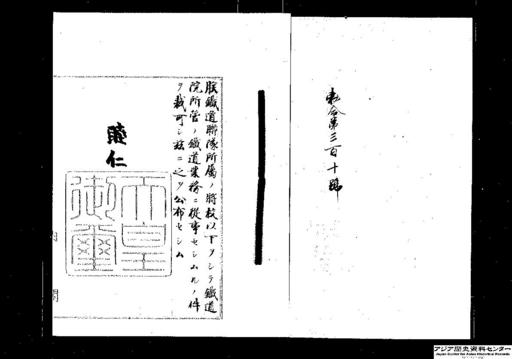 勅令第三百十號
朕鐵道聯隊所屬ノ將校以下ヲシテ鐵道
院所管ノ鐵道業務ニ從事セシムルノ件
ヲ裁可シ茲ニ之ヲ公布セシム
睦仁
天皇御璽
内閣
アジア歴史資料センター
Japan Center for Asian Historical Records